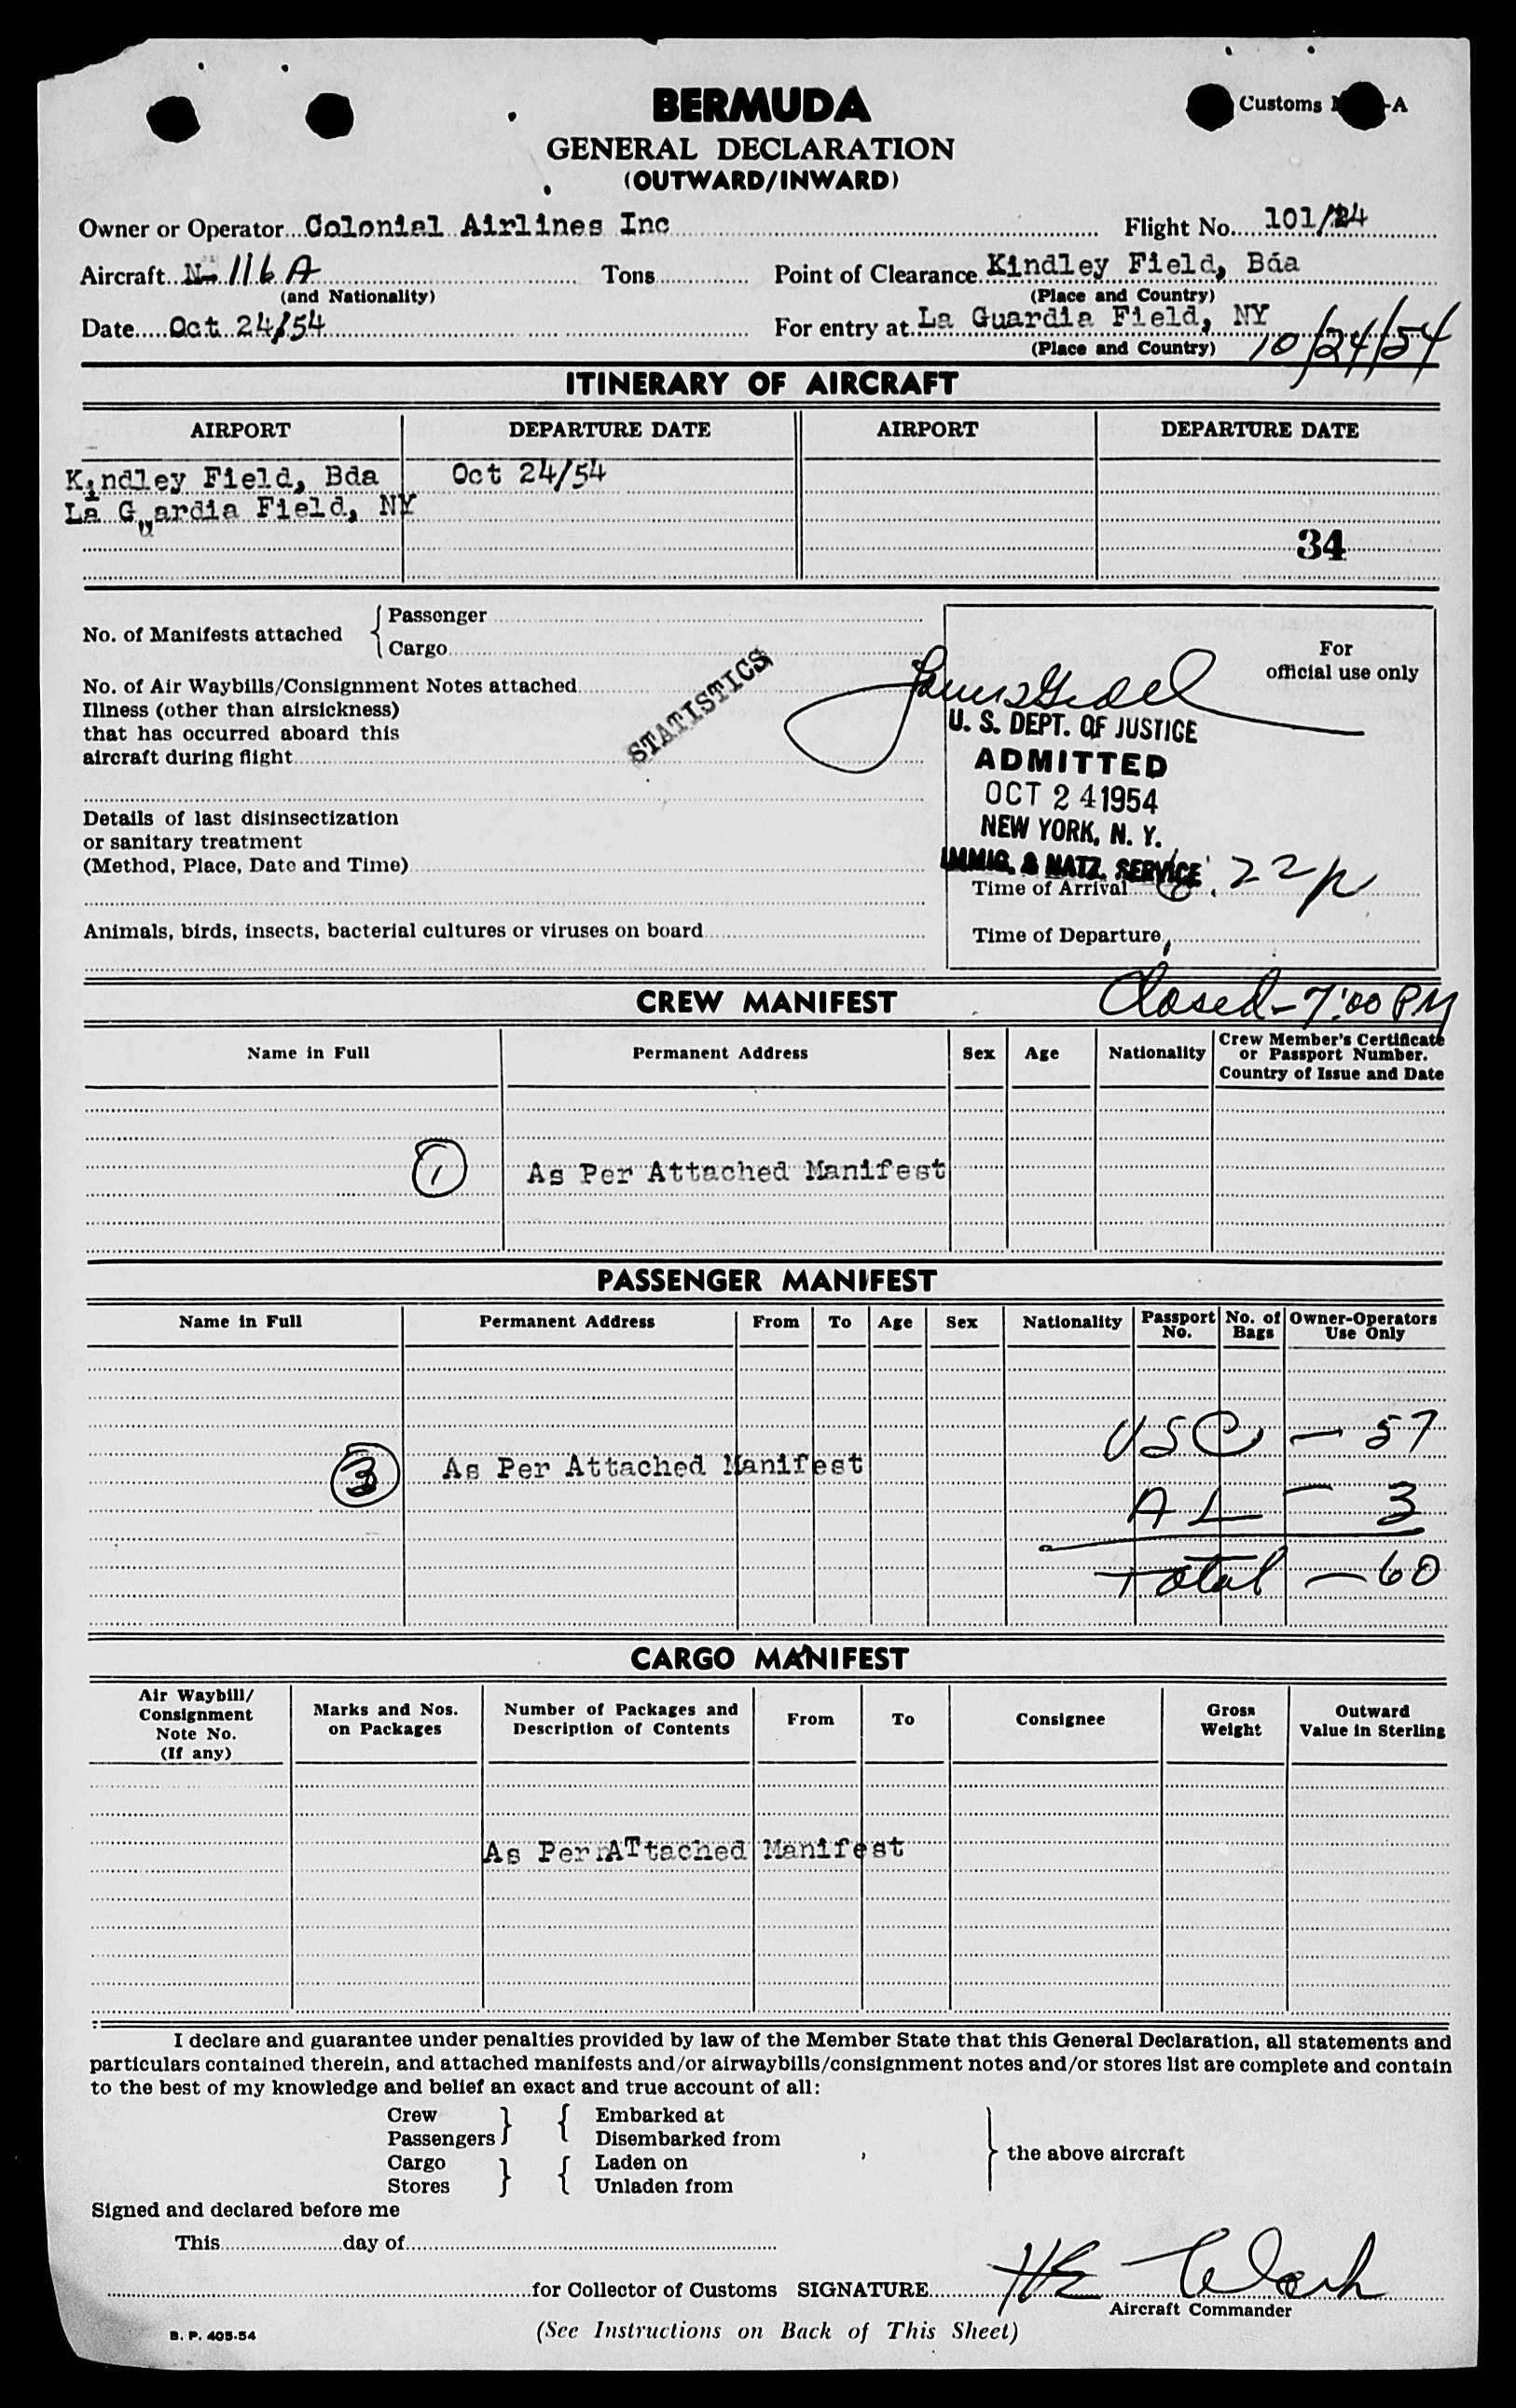 BERMUDA
Customs -A
GENERAL DECLARATION
(OUTWARD/INWARD)
Owner or Operator Colonial Airlines Inc Flight No. 101/24
Aircraft N-116A Tons Point of Clearance Kindley Field, Bda
(and Nationality) (Place and Country)
Date Oct 24/54 For entry at La Guardia Field, NY
(Place and Country) 10/24/54
ITINERARY OF AIRCRAFT
AIRPORT DEPARTURE DATE AIRPORT DEPARTURE DATE
Kindley Field, Bda Oct 24/54
La Guardia Field, NY
34
No. of Manifests attached { Passenger
Cargo
No. of Air Waybills/Consignment Notes attached
Illness (other than airsickness)
that has occurred aboard this
aircraft during flight
STATISTICS
For
official use only
U. S. DEPT. OF JUSTICE
ADMITTED
OCT 24 1954
NEW YORK, N. Y.
IMMIG. & NATZ. SERVICE
Details of last disinsectization
or sanitary treatment
(Method, Place, Date and Time)
Time of Arrival 6.22p
Animals, birds, insects, bacterial cultures or viruses on board
Time of Departure
CREW MANIFEST Closed - 7:00 PM
Name in Full Permanent Address Sex Age Nationality Crew Member's Certificate
or Passport Number.
Country of Issue and Date
1 As Per Attached Manifest
PASSENGER MANIFEST
Name in Full Permanent Address From To Age Sex Nationality Passport No. No. of Bags Owner-Operators Use Only
USC - 57
3 As Per Attached Manifest
AL - 3
Total - 60
CARGO MANIFEST
Air Waybill/
Consignment
Note No.
(If any)
Marks and Nos.
on Packages
Number of Packages and
Description of Contents
From To Consignee
Gross
Weight
Outward
Value in Sterling
As Per ATtached Manifest
I declare and guarantee under penalties provided by law of the Member State that this General Declaration, all statements and
particulars contained therein, and attached manifests and/or airwaybills/consignment notes and/or stores list are complete and contain
to the best of my knowledge and belief an exact and true account of all:
Crew } { Embarked at
Passengers Disembarked from
Cargo } { Laden on
Stores Unladen from
} the above aircraft
Signed and declared before me
This day of
for Collector of Customs SIGNATURE HE
Aircraft Commander
B. P. 405-54
(See Instructions on Back of This Sheet)